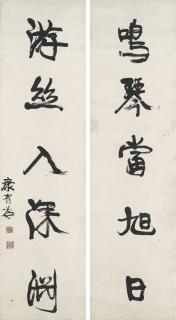 鳴琴當旭日
游絲入深淵
康有為